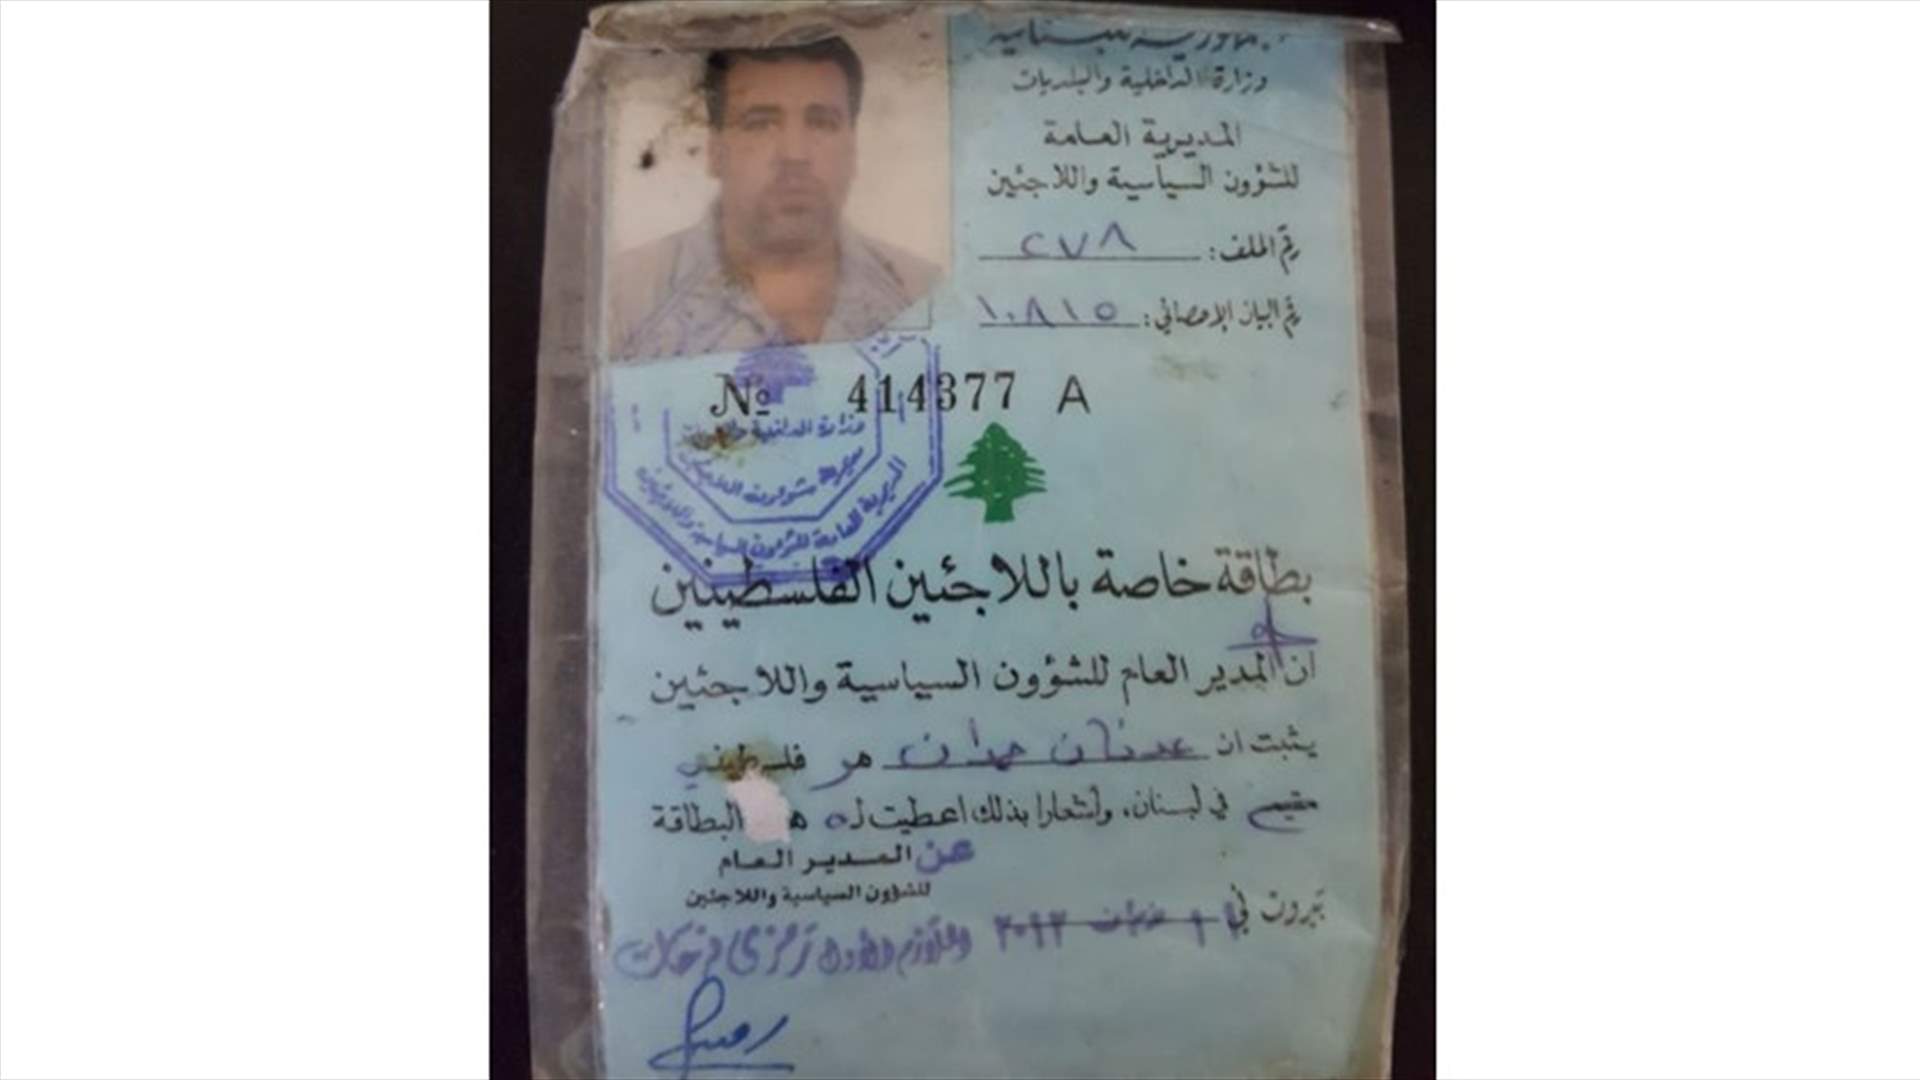 وزارة الداخلية والبلديات
المديرية العامة
للشؤون السياسية واللاجئين
رقم الملف: ٢٧٨
رقم البيان الإحصائي: ١٠٨١٥
№ 414377 A
وزارة الداخلية والبلديات
المديرية العامة للشؤون السياسية واللاجئين
بطاقة خاصة باللاجئين الفلسطينيين
ان المدير العام للشؤون السياسية واللاجئين
يثبت ان عدنان حمدان هو فلسطيني
مقيم في لبنان، وإشعارا بذلك اعطيت له البطاقة
عن المدير العام
للشؤون السياسية واللاجئين
بيروت في حزيران ٢٠١٢
الملازم الأول رمزي